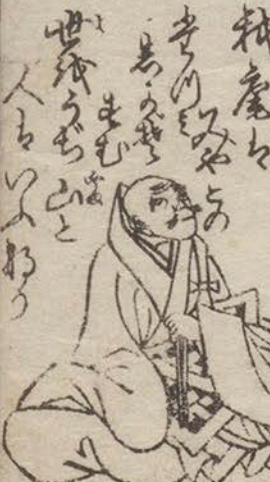 我庵は
みやこの
たつみ
しかぞ
すむ
世をうぢ山と
人はいふなり